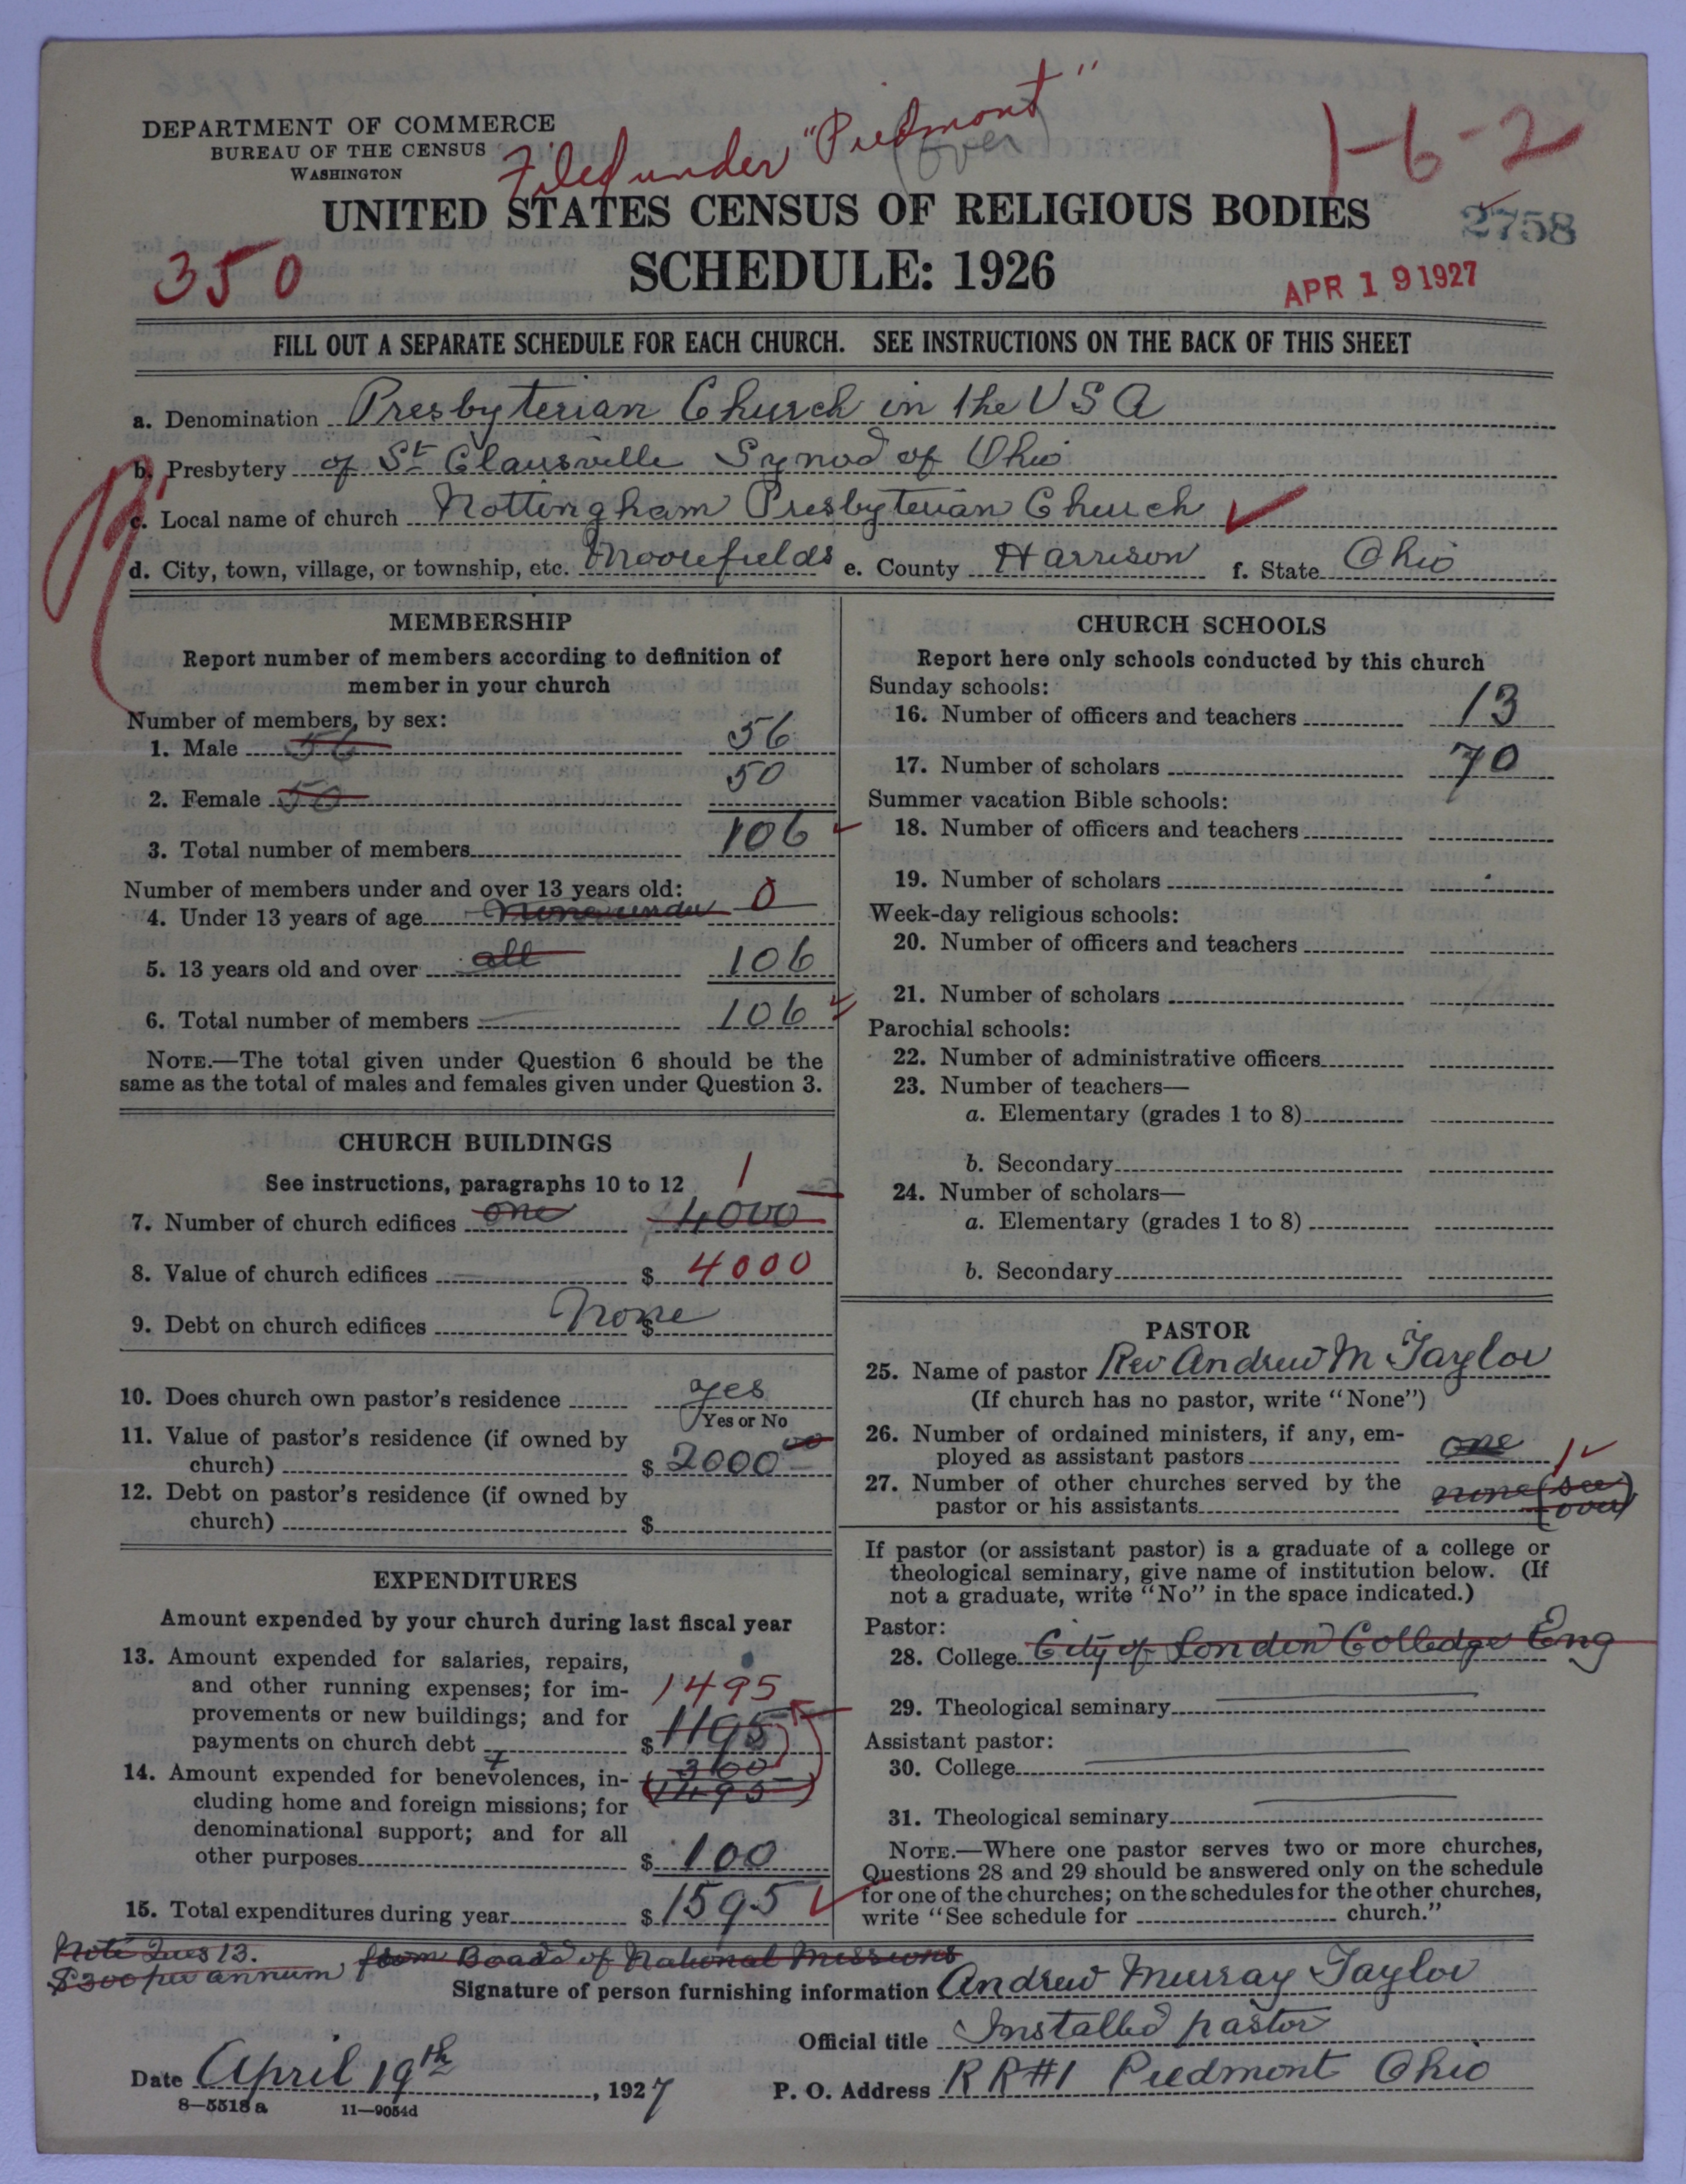 DEPARTMENT OF COMMERCE
BUREAU OF THE CENSUS
WASHINGTON
Filed under "Piedmont"
(over)
1-6-2
UNITED STATES CENSUS OF RELIGIOUS BODIES
2758
350
SCHEDULE: 1926
APR 19 1927
FILL OUT A SEPARATE SCHEDULE FOR EACH CHURCH. SEE INSTRUCTIONS ON THE BACK OF THIS SHEET
a. Denomination Presbyterian Church in the USA
b. Presbytery of St Clairsville Synod of Ohio
c. Local name of church Nottingham Presbyterian Church ✓
d. City, town, village, or township, etc. Moorefields e. County Harrison f. State Ohio
MEMBERSHIP
Report number of members according to definition of
member in your church
Number of members, by sex:
1. Male 56 56
2. Female 50 50
3. Total number of members 106
Number of members under and over 13 years old:
4. Under 13 years of age None under 0
5. 13 years old and over all 106
6. Total number of members 106
NOTE.—The total given under Question 6 should be the
same as the total of males and females given under Question 3.
CHURCH BUILDINGS
See instructions, paragraphs 10 to 12 1
7. Number of church edifices one 4000
8. Value of church edifices $ 4000
9. Debt on church edifices $ None
10. Does church own pastor's residence yes
Yes or No
11. Value of pastor's residence (if owned by
church) $ 2000 00
12. Debt on pastor's residence (if owned by
church) $
EXPENDITURES
Amount expended by your church during last fiscal year
13. Amount expended for salaries, repairs,
and other running expenses; for im- 1495
provements or new buildings; and for
payments on church debt $ 1195
14. Amount expended for benevolences, in- 300
cluding home and foreign missions; for (1495)
denominational support; and for all
other purposes $ 100
15. Total expenditures during year $ 1595 ✓
CHURCH SCHOOLS
Report here only schools conducted by this church
Sunday schools:
16. Number of officers and teachers 13
17. Number of scholars 70
Summer vacation Bible schools:
18. Number of officers and teachers
19. Number of scholars
Week-day religious schools:
20. Number of officers and teachers
21. Number of scholars
Parochial schools:
22. Number of administrative officers
23. Number of teachers—
a. Elementary (grades 1 to 8)
b. Secondary
24. Number of scholars—
a. Elementary (grades 1 to 8)
b. Secondary
PASTOR
25. Name of pastor Rev Andrew M Taylor
(If church has no pastor, write "None")
26. Number of ordained ministers, if any, em-
ployed as assistant pastors one 1 ✓
27. Number of other churches served by the
pastor or his assistants none (see over)
If pastor (or assistant pastor) is a graduate of a college or
theological seminary, give name of institution below. (If
not a graduate, write "No" in the space indicated.)
Pastor:
28. College City of London Colledge Eng
29. Theological seminary
Assistant pastor:
30. College
31. Theological seminary
NOTE.—Where one pastor serves two or more churches,
Questions 28 and 29 should be answered only on the schedule
for one of the churches; on the schedules for the other churches,
write "See schedule for church."
Note Ques 13.
$300 per annum from Board of National Missions
Signature of person furnishing information Andrew Murray Taylor
Official title Installed pastor
Date April 19th, 1927
P. O. Address RR#1 Piedmont Ohio
8—5518 a 11—9054d